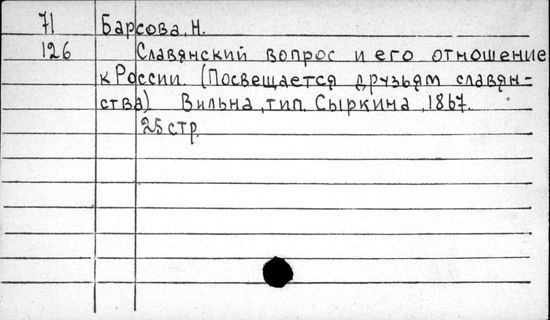 71 Барсова, Н.
126 Славянский вопрос и его отношение
к России. (Посвещается друзьям славян-
ства). Вильна, тип. Сыркина, 1867.
25 стр.